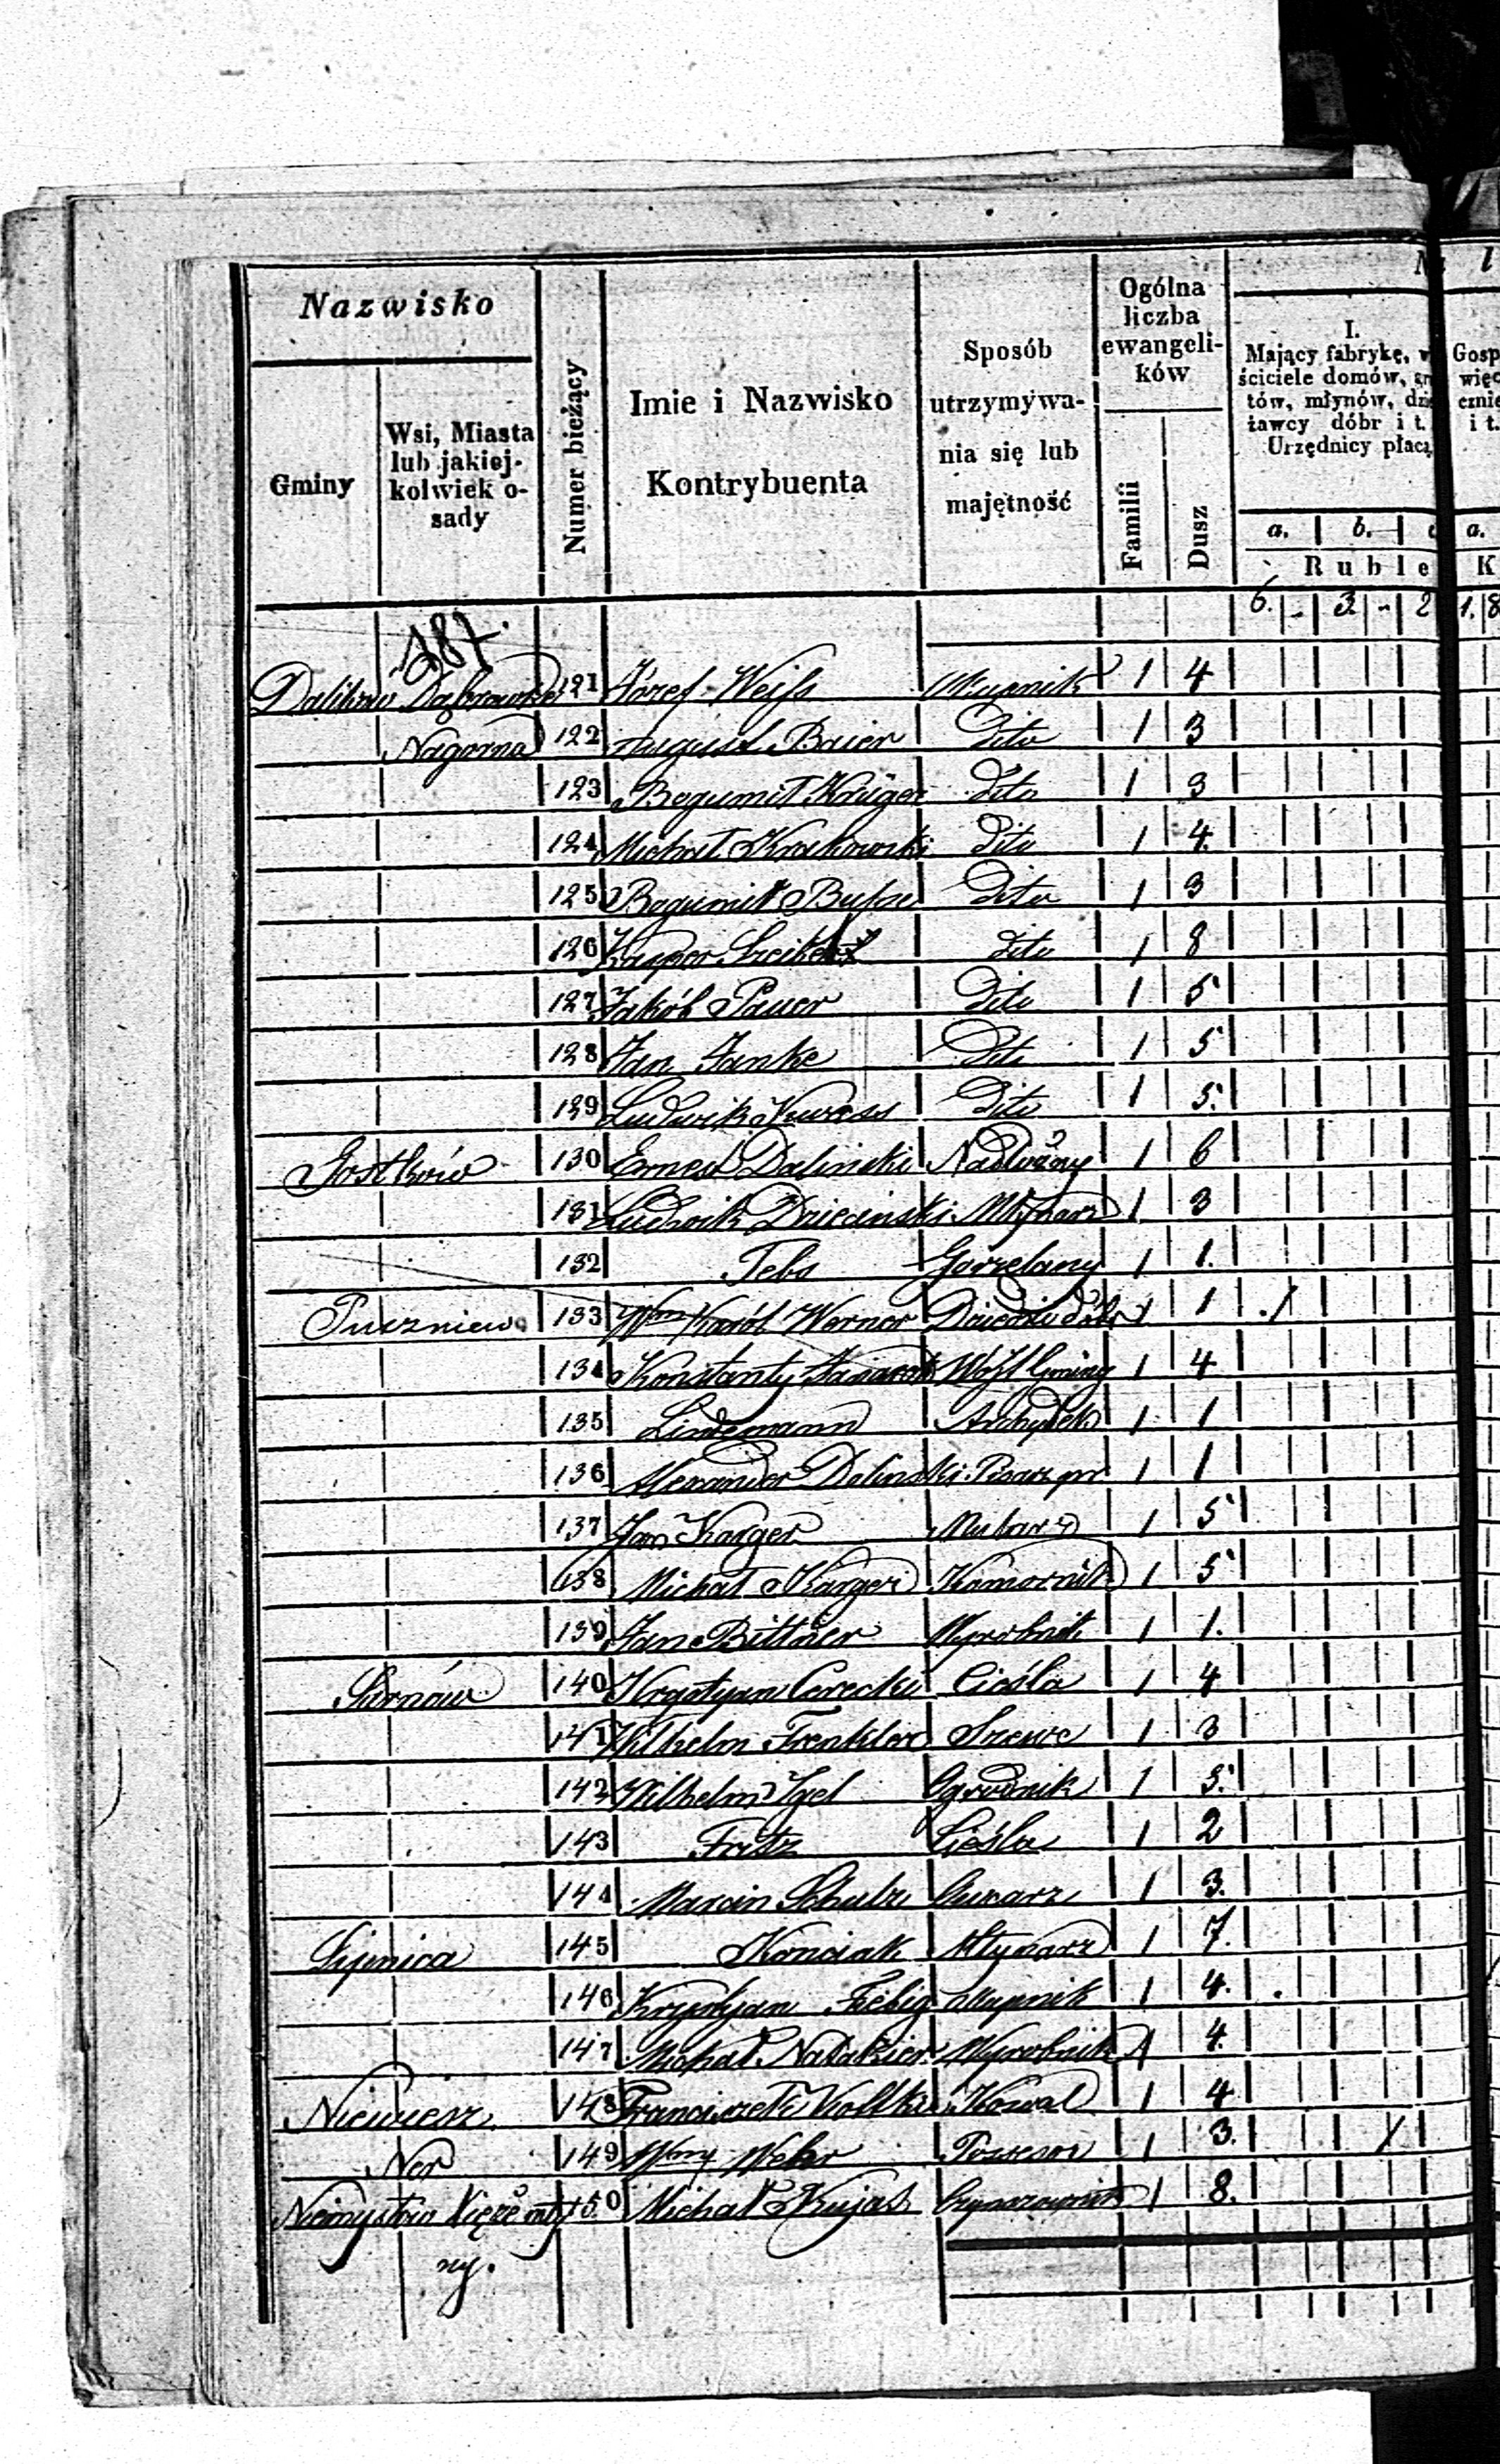 Nazwisko
Gminy
Wsi, Miasta
lub jakiej-
kolwiek o-
sady
Numer bieżący
Imie i Nazwisko
Kontrybuenta
Sposób
utrzymywa-
nia się lub
majętność
Ogólna
liczba
ewangeli-
ków
Familii
Dusz
I.
Mający fabrykę, w
ściciele domów, gr
tów, młynów, dzie
żawcy dóbr i t.
Urzędnicy płacą
a. b. c
Ruble
Gosp
więc
i t.
a.
K
6. - 3 - 2 1. 8
187.
Dalików Dąbrowka 121 Józef Weiſs Okupnik 1 4
Nagorna 122 August Baier Dito 1 3
123 Bogumił Krüger Dito 1 3
124 Michał Krakowski Dito 1 4.
125 Bogumił Buſse Dito 1 3
126 Kasper Dito 1 8
127 Jakób Pauer Dito 1 5
128 Jan Janke Dito 1 5
129 Ludwik Dito 1 5.
Gostków 130 Ernest Daliński 1 6
131 Ludwik Młynarz 1 3
132 Tebs Gorzelany 1 1.
Puczniew 133 Wny Karól Werner Dziedzic dóbr 1 1 /
134 Konstanty Wójt Gminy 1 4
135 Lindemann Archytekt 1 1
136 Alexander Daliński Pisarz pr 1 1
137 Jan Karger Mularz 1 5
138 Michał Karger Komornik 1 5
139 Jan Bittner Wyrobnik 1 1.
Sarnów 140 Krystyan Cerecki Cieśla 1 4
141 Wilhelm Frenkler Szewc 1 3
142 Wilhelm Igel Ogrodnik 1 5.
143 Fritz Cieśla 1 2
144 Marcin Schultz Owczarz 1 3.
145 Konciak Młynarz 1 7.
146 Krystyan Fiebig Okupnik 1 4.
147 Michał Wyrobnik 1 4.
Niewiesz 148 Franciszek Kowal 1 4
Ner 149 Wny Wehr Possesor 1 3. /
Niemysłów Księże Mły 150 Michał Kujat 1 8.
ny.